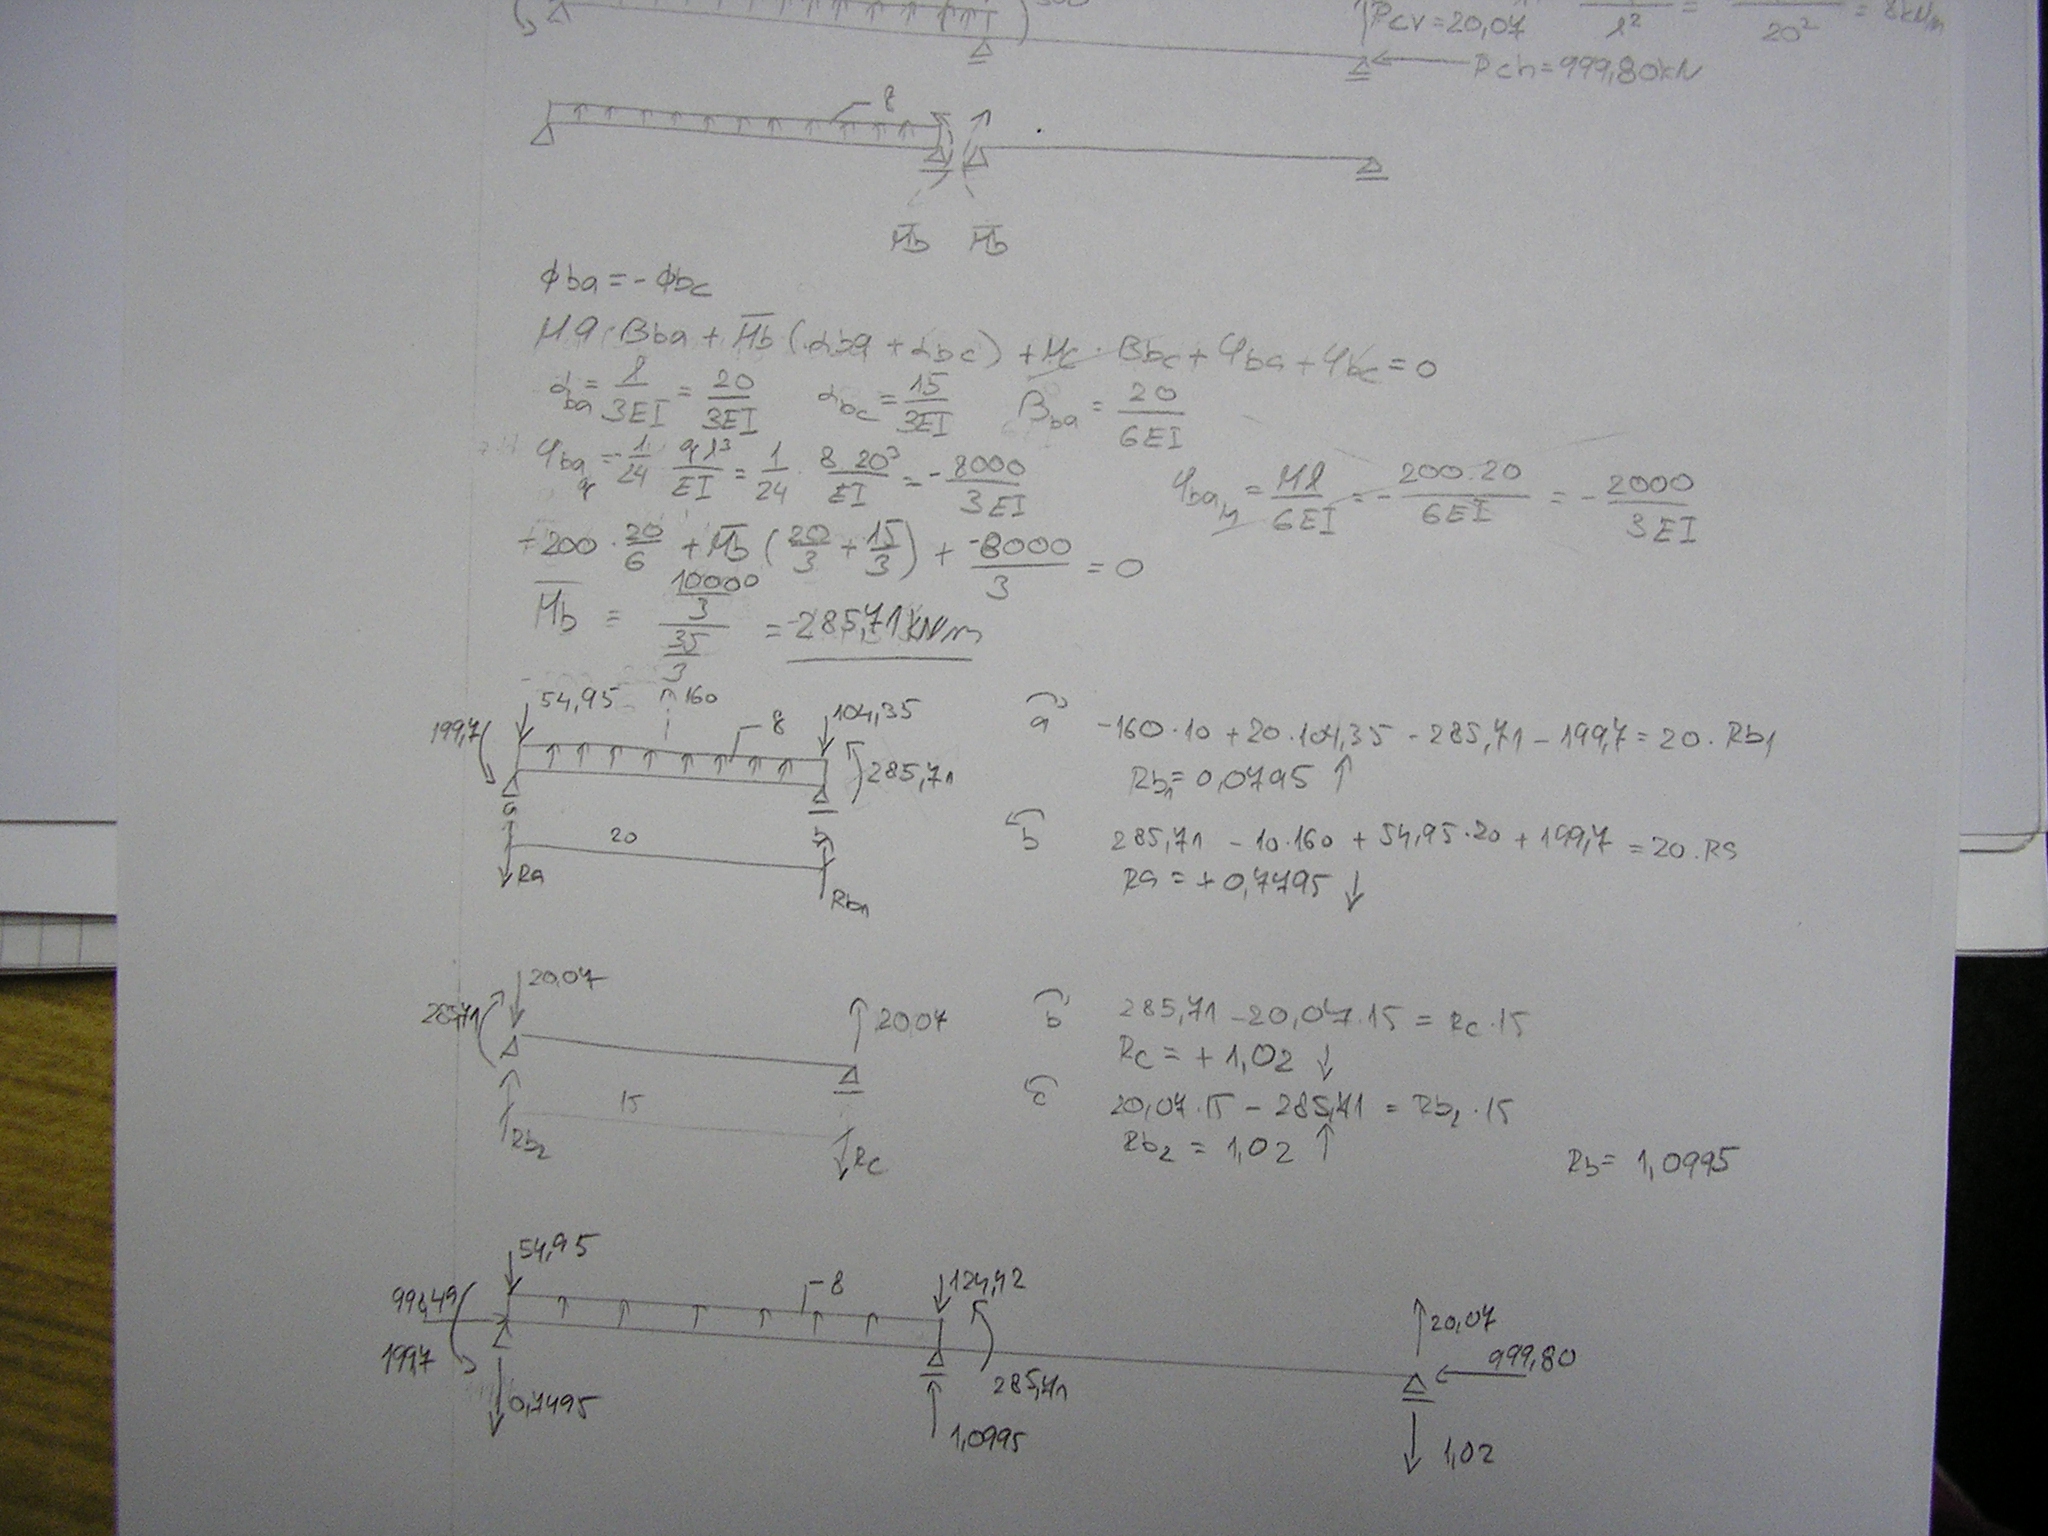 Pcv=20,07
l² = 20² = 8kN/m
Pch=999,80kN
8
M̅b M̅b
ϕba=-ϕbc
Ma·βba+M̅b(αba+αbc)+Mc·βbc+φba+φbc=0
αba=l/3EI=20/3EI αbc=15/3EI βba=20/6EI
φbaq=-1/24 ql³/EI=1/24·8 20³/EI=-8000/3EI φbaM=Ml/6EI=-200.20/6EI=-2000/3EI
-200·20/6+M̅b(20/3+15/3)+-8000/3=0
M̅b=10000/3/35/3=-285,71kNm
54,95 160 8 104,35
199,7 285,71
a -160·10+20·104,35-285,71-199,7=20·Rb1
Rb1=0,0795↑
a 20 b
Ra Rb1
b 285,71-10·160+54,95·20+199,7=20.Ra
Ra=+0,7795↓
20,07
285,71 20,07
15
Rb2 Rc
b 285,71-20,07·15=Rc·15
Rc=+1,02↓
c 20,07·15-285,71=Rb2·15
Rb2=1,02↑ Rb=1,0995
54,95 8 124,42
998,49 20,07
199,7 285,71 999,80
0,7495 1,0995 1,02